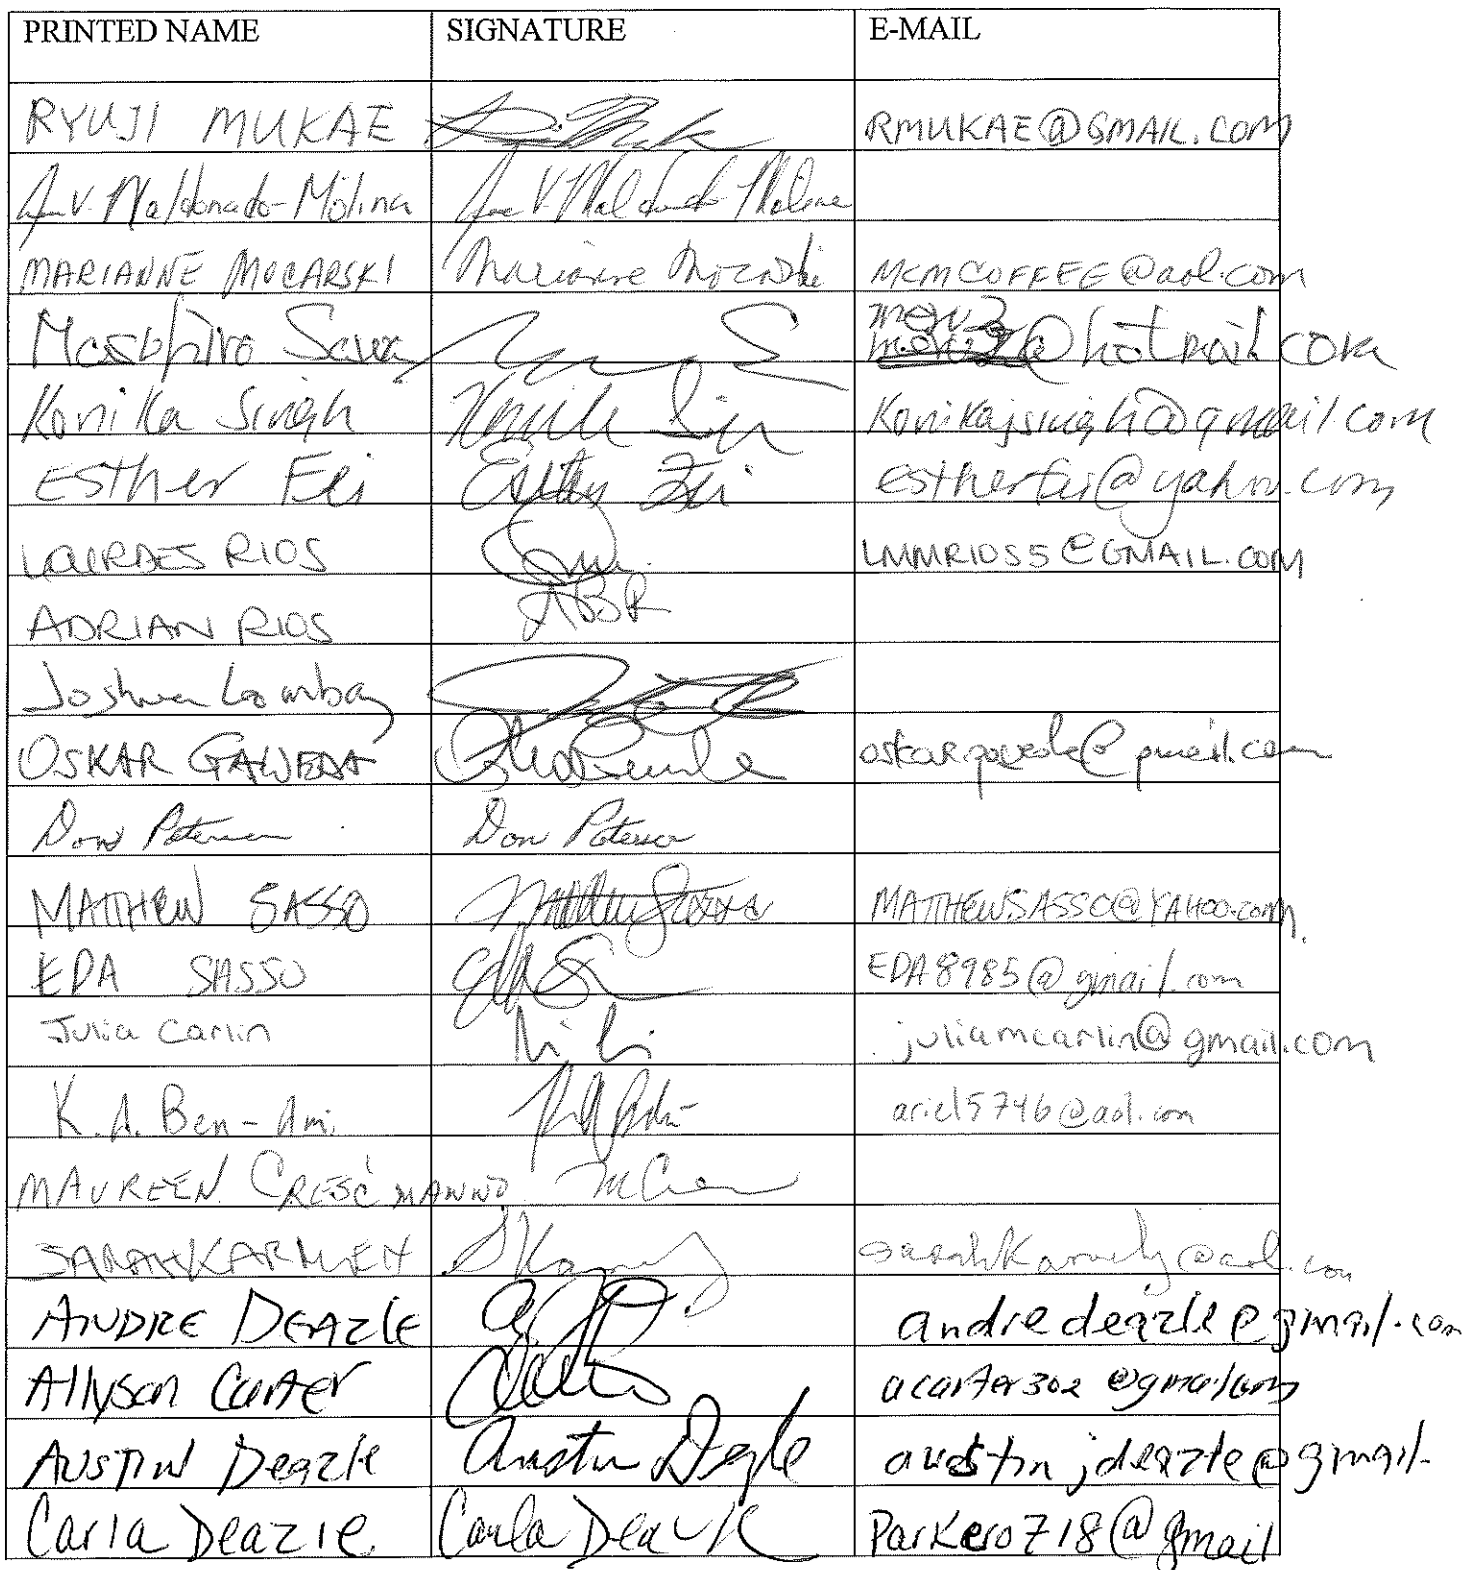 PRINTED NAME SIGNATURE E-MAIL
RYUJI MUKAE RMUKAE@GMAIL.COM
V. Maldonado-Molina V. Maldonado-Molina
MARIANNE MOCARSKI Marianne Mocarski MCMCOFFEE@aol.com
@hotmail.com
Konika Singh Konikajsingh@gmail.com
Esther Fei Esther Fei estherfei@yahoo.com
LOURDES RIOS LMMRIOS5@GMAIL.COM
ADRIAN RIOS ABR
Joshua
OSKAR GAWEDA oskargaweda@gmail.com
Don Petersen Don Petersen
MATTHEW SASSO MATTHEW.SASSO@YAHOO.COM
EDA SASSO EDA8985@gmail.com
Julia Carlin juliamcarlin@gmail.com
K.A. Ben-Ami ariel5746@aol.com
MAUREEN CRESCMANNO
SARAH KARMELY sarahkarmely@aol.com
ANDRE DEAZLE andredeazle@gmail.com
Allyson Carter acarter302@gmail.com
AUSTIN Deazle Austin Deazle austinjdeazle@gmail.
Carla Deazle Carla Deazle Parkero718@gmail